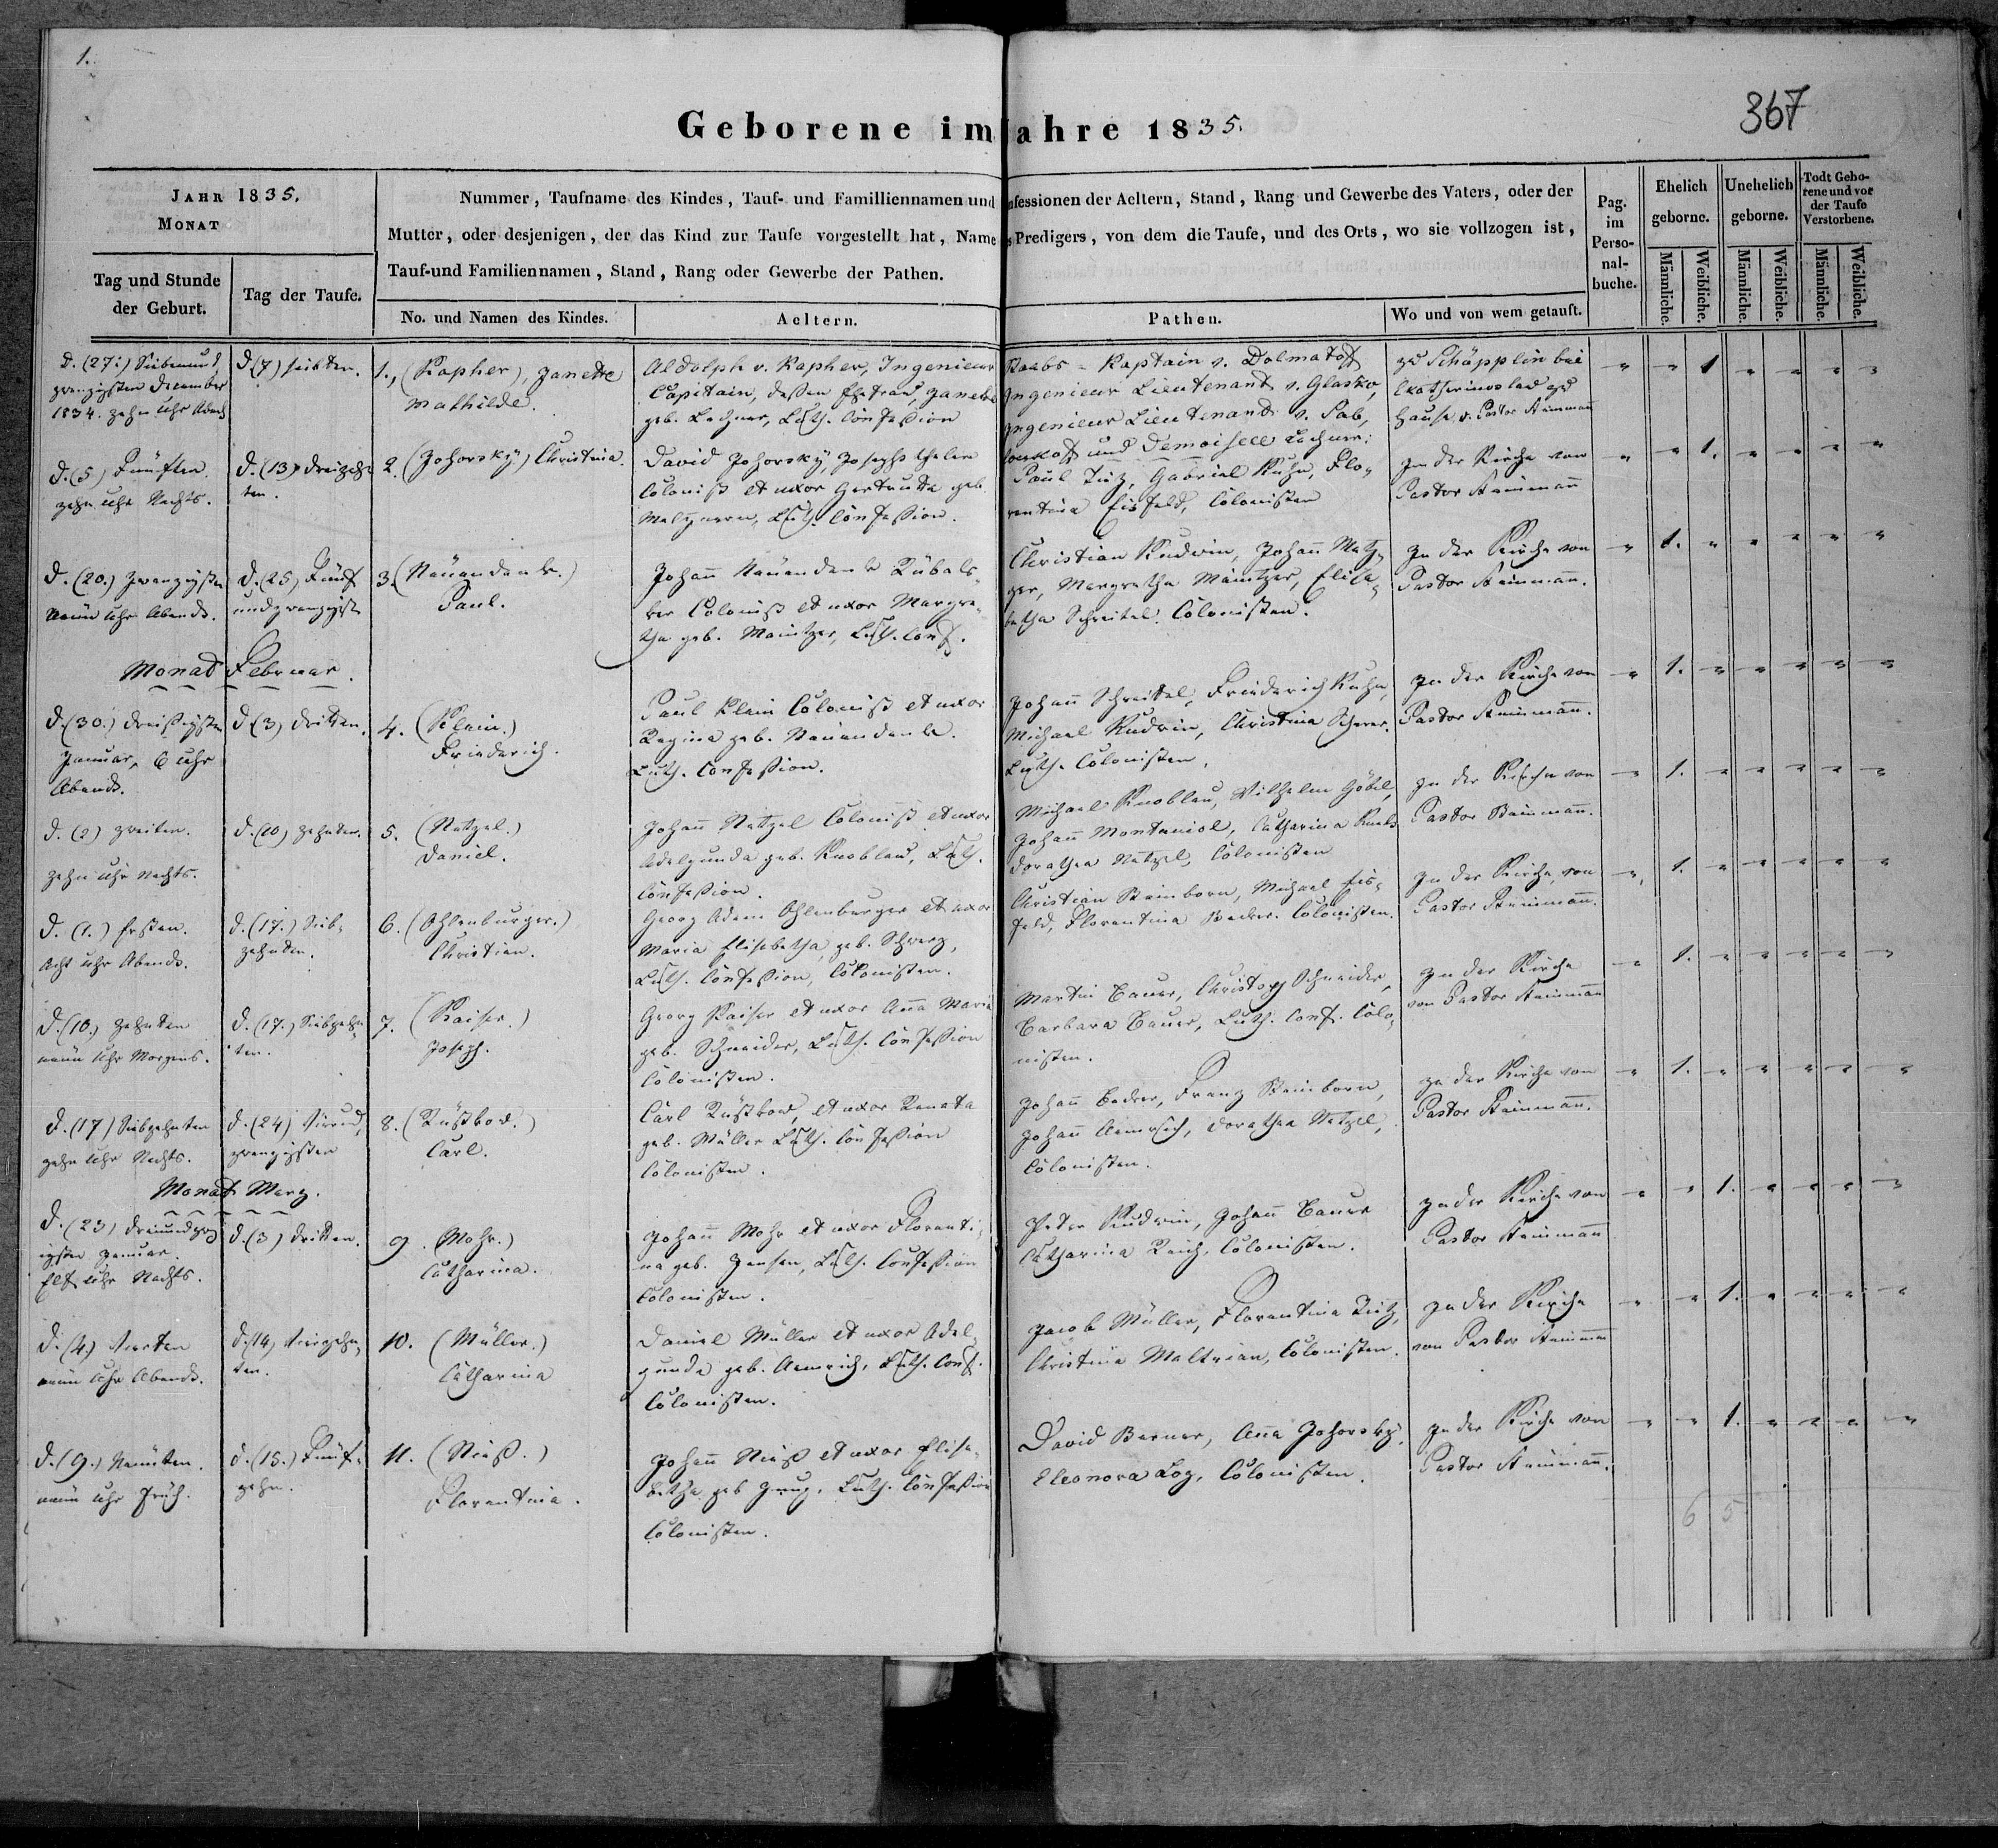 1.
367
Geborene im Jahre 1835.
JAHR 1835.
MONAT
Tag und Stunde
der Geburt.
Tag der Taufe.
Nummer, Taufname des Kindes, Tauf- und Familliennamen und nfessionen der Aeltern, Stand, Rang und Gewerbe des Vaters, oder der
Mutter, oder desjenigen, der das Kind zur Taufe vorgestellt hat, Name s Predigers, von dem die Taufe, und des Orts, wo sie vollzogen ist,
Tauf-und Familiennamen, Stand, Rang oder Gewerbe der Pathen.
No. und Namen des Kindes.
Aeltern.
Pathen.
Wo und von wem getauft.
Pag.
im
Perso-
nal-
buche.
Ehelich
geborne.
Unehelich
geborne.
Todt Gebo-
rene und vor
der Taufe
Verstorbene.
Männliche.
Weibliche.
Männliche.
Weibliche.
Männliche.
Weibliche.
D. (27.) Siebenund
zwanzigsten December
1834. zehn Uhr Abends
d (7) siebten.
1., (Kapher), Janette
Mathilde.
Aldolph v. Kapher, Ingenieur
Capitain, deßen Ehefrau, Janette
geb. Lechner, Luth. Confeßion
Staabs-Kaptain v. Dolmatoff
Ingenieur Lieutenant v. Glasko,
Ingenieur Lieutenant v. Sab,
und Demoiselle Lechner.
zu Schäpplin bei
Ekatherinoslad zu
Hause v. Pastor
" " 1 " " " "
d. (5) Fünften
zehn Uhr Nachts.
d. (13) dreizehn
ten.
2. (Johorsky) Christina.
David Johorsky, Josephsthaler
Colonist et uxor Gertrutta geb.
Luth. Confeßion.
Paul Tutz, Gabriel Kuhn, Flo,
rentina Eisfeld, Colonisten
In der Kirche von
Pastor
" " 1. " " " "
d. (20.) zwanzigsten
neun Uhr Abends.
d. (25) Fünf
undzwanzigst
3. (Nauendank.)
Paul.
Johann Nauendank Rübals,
ker Colonist et uxor Margre,
tha geb. Maintzer, Luth. Conf.
Christian Rudwin, Johann Metz,
ger, Margretha Maintzer, Elisa,
betha Schreitel. Colonisten.
In der Kirche von
Pastor
" 1. " " " " "
Monat Februar.
d (30.) dreißigsten
Januar, 6 Uhr
Abends.
d (3) dritten.
4. (Klein.)
Friederich.
Paul Klein Colonist et uxor
Regina geb. Nauendank.
Luth. Confeßion.
Johann Schreitel, Friederich Kuhn,
Michael Rudwin, Christina Scherer.
Luth. Colonisten.
In der Kirche von
Pastor
" 1. " " " " "
d. (2) zweiten.
zehn Uhr Nachts.
d. (10) zehnten.
5. (Netzel.)
Daniel.
Johann Netzel Colonist et uxor
Adelgunda geb. Knoblau, Luth.
Confeßion.
Michael Knoblau, Wilhelm Göbel,
Johann Montaniol, Catharina
Dorathea Netzel, Colonisten
In der Kirche von
Pastor
" 1. " " " " "
d. (1.) Ersten.
Acht Uhr Abends.
d. (17.) Sieb,
zehnten.
6. (Ohlenburger.)
Christian.
Georg Adam Ohlenburger et uxor
Maria Elisabetha, geb. Schwarz,
Luth. Confeßion, Colonisten.
Christian Steinborn, Michael Eis,
feld, Florentina Becker. Colonisten.
In der Kirche, von
Pastor
" 1. " " " " "
d. (10.) zehnten
neun Uhr Morgens.
d. (17.) Siebzehn
ten.
7. (Kaiser.)
Joseph.
Georg Kaiser et uxor Ana Maria
geb. Schneider, Luth. Confeßion
Colonisten.
Martin Bauer, Christoph Schneider,
Barbara Bauer, Luth. Conf. Colo,
nisten.
In der Kirche
von Pastor
" 1. " " " " "
d. (17) Siebzehnten
zehn Uhr Nachts.
d. (24) Vierund,
zwanzigsten
8. (Rüstkow.)
Carl.
Carl Rüstkow, et uxor Renata
geb. Müller Luth. Confeßion
Colonisten.
Johann Becker, Franz Steinborn,
Johann Aemrich, Dorathea Netzel,
Colonisten.
In der Kirche von
Pastor
" 1. " " " " "
Monat Merz.
d. (23) dreiundzwan
igsten Januar.
Elf Uhr Nachts.
d. (3) dritten.
9. (Mohr.)
Catharina.
Johann Mohr et uxor Florenti,
na geb. Jensen, Luth. Confeßion
Colonisten.
Peter Rudwin, Johann Bauer
Catharina Reich, Colonisten.
In der Kirche von
Pastor
" " 1. " " " "
d. (4.) Vierten
neun Uhr Abends.
d. (14) Vierzehn,
ten.
10. (Müller.)
Catharina
Daniel Müller et uxor Adel,
gunda geb. Aemrich, Luth. Conf.
Colonisten.
Jacob Müller, Florentina Tutz,
Christina Maltrian, Colonisten.
In der Kirche
von Pastor
" " 1. " " " "
d. (9.) Neunten.
neun Uhr Früh.
d. (15.) Fünf,
zehn.
11. (Neuß.)
Florentina.
Johann Neuß et uxor Elisa,
betha geb. Luth. Confeßion
Colonisten.
David Berner, Ana Johorsky,
Eleonora Loz, Colonisten.
In der Kirche von
Pastor
" " 1. " " " "
6 5